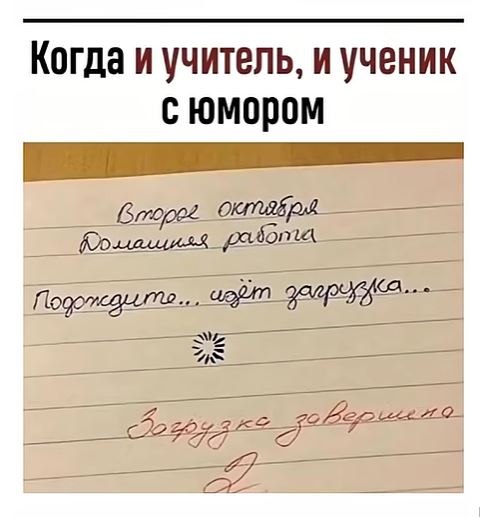 Когда и учитель, и ученик
с юмором
Второе октября
Домашняя работа
Подождите... идёт загрузка...
Загрузка завершена
2